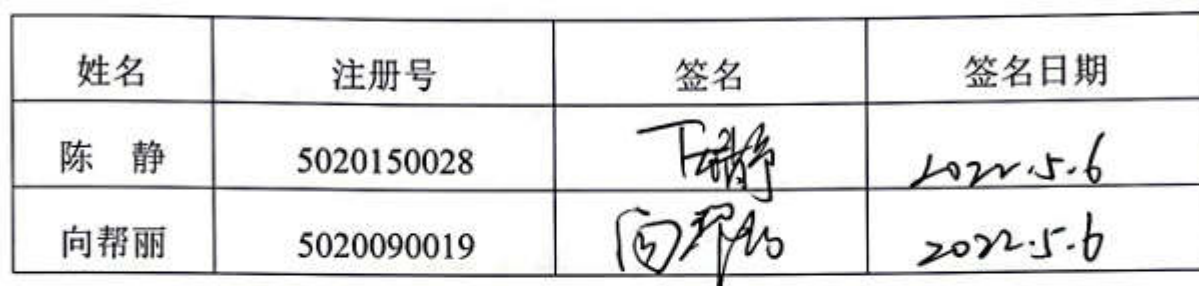 姓名 注册号 签名 签名日期
陈 静 5020150028 陈静 2022.5.6
向帮丽 5020090019 向帮丽 2022.5.6